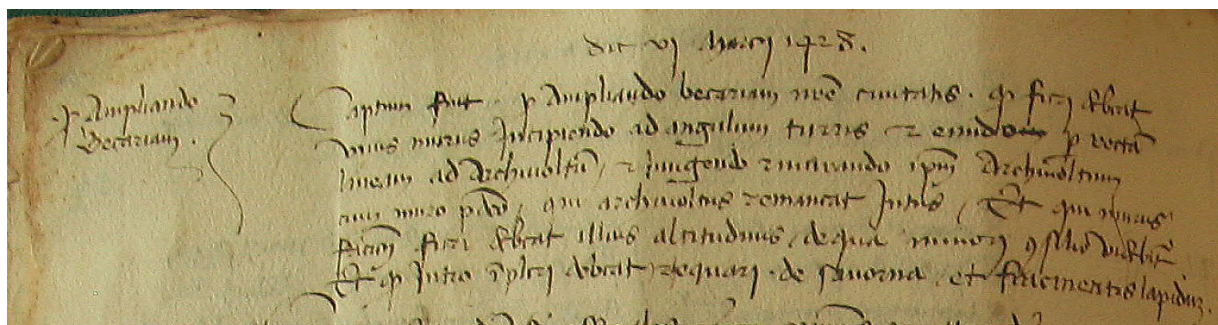 die vj Marcij 1428.
p Ampliando
Becariam.
Captum fuit . p Ampliando becariam nrē ciuitatis . qp fieri debeat
vnus murus Incipiendo ad angulum turris et eundo p rectā
lineam ad Archiuoltū, et Iungendo et murando ipm̄ Archiuoltum
cum muro pdco, qui archiuoltus remaneat Intus, Et qui murus
fieri debeat illius altitudinis, de qua minori 9silio videbit̄
Et qp Intro īpleri debeat, et equari . de sauorna, et fracmentis lapidum.